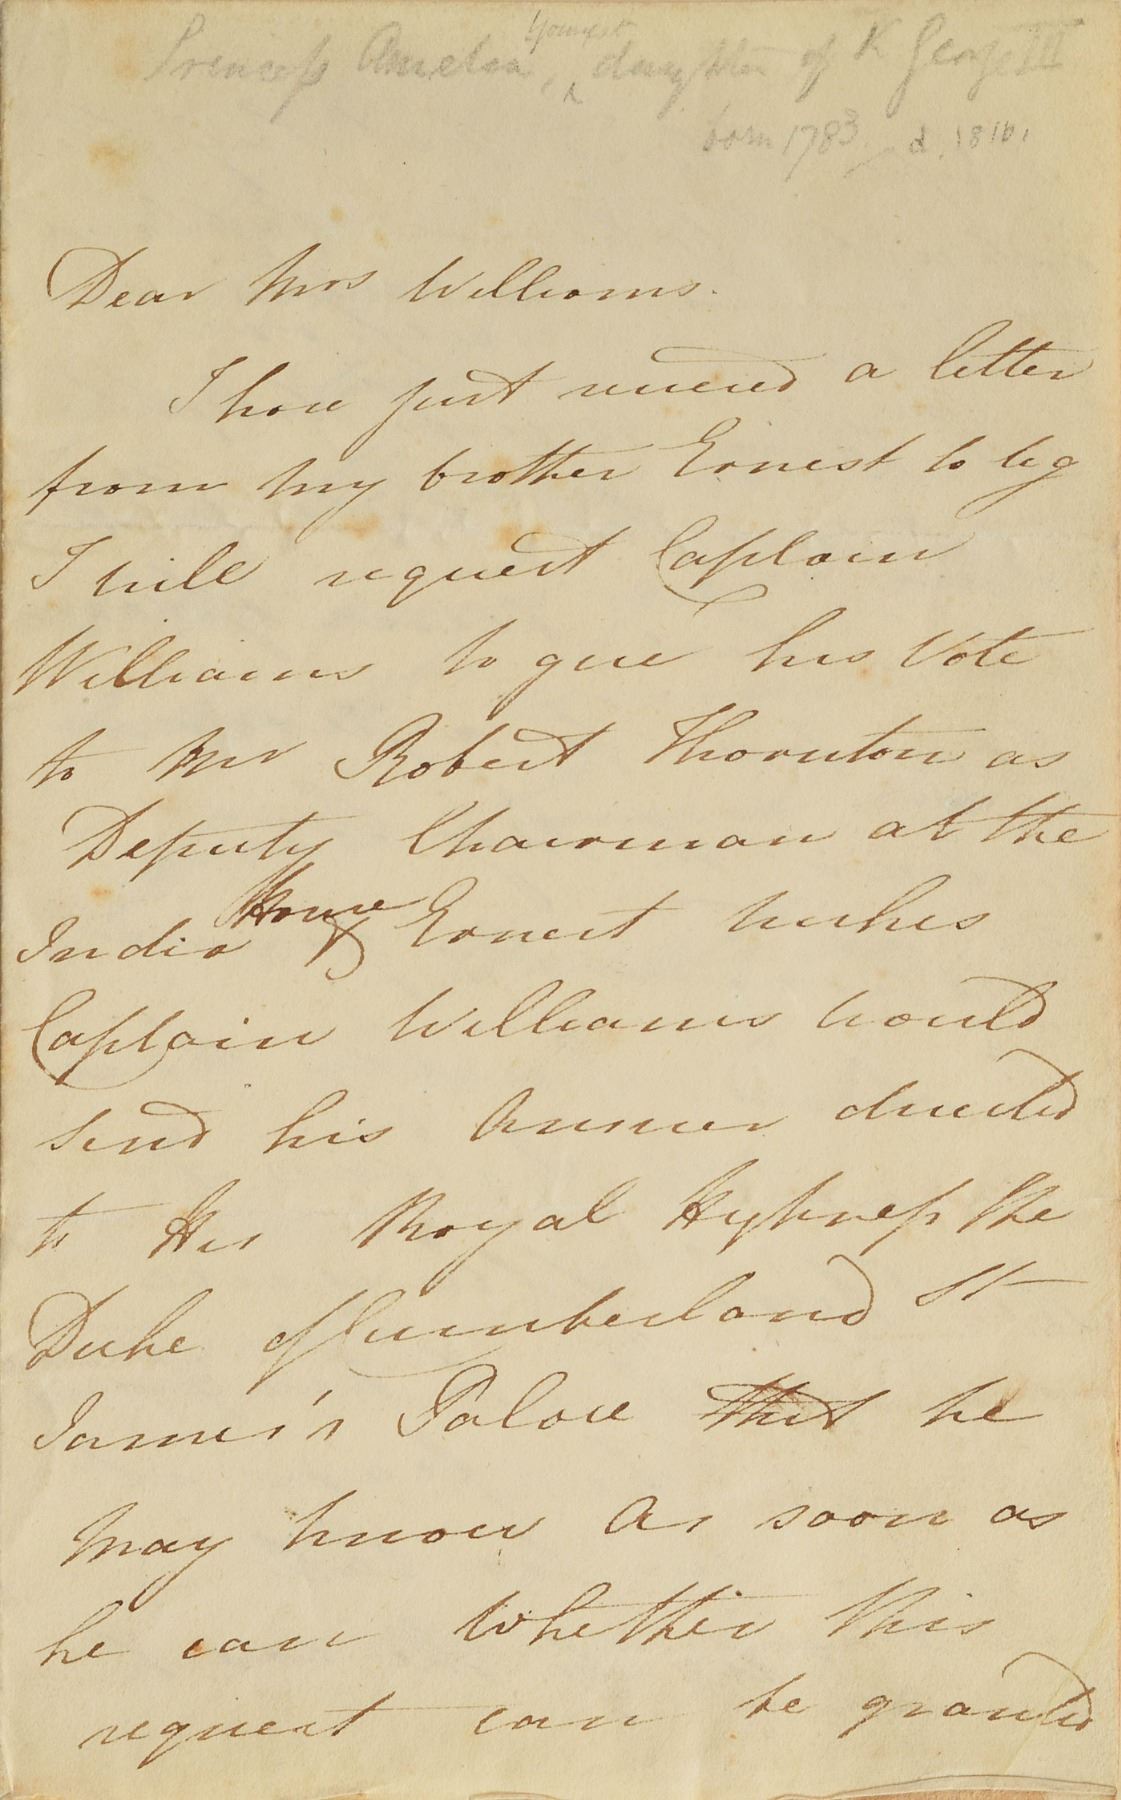 Princess Amelia, youngest daughter of K George III
born 1783 – d. 1810.
Dear Mrs Williams.
I have just received a letter
from my brother Ernest to beg
I will request Captain
Williams to give his Vote
to Mr Robert Thornton as
Deputy Chairman at the
India House & Ernest wishes
Captain Williams would
send his Answer directed
to His Royal Highness the
Duke of Cumberland St
James's Palace that he
may know as soon as
he can whether this
request can be granted